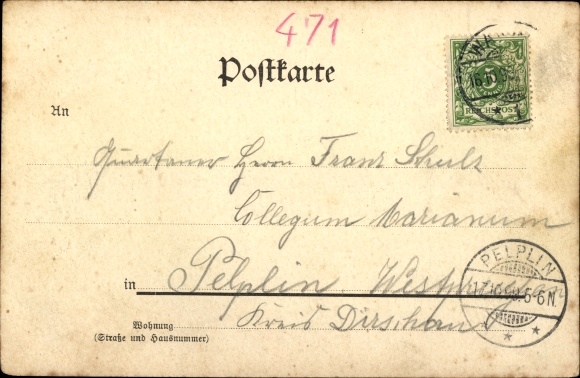 471
Postkarte
An
REICHSPOST
Quartaner Herrn Franz Schulz
Collegium Marianum
PELPLIN
in Pelplin Westpreussen
5-6N.
Kreis Dirschau
Wohnung
(Straße und Hausnummer)